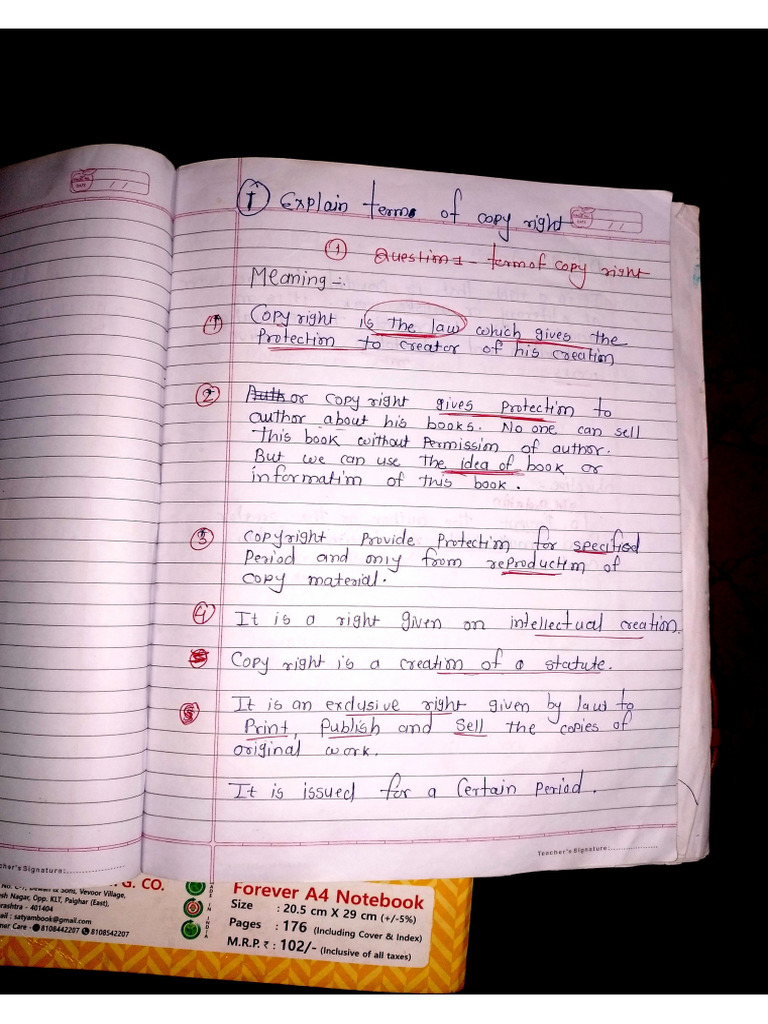 ① Explain terms of copy right
① Question 1 - term of copy right
Meaning :-
① Copy right is the law which gives the
Protection to creator of his creation
② Auth or copy right gives protection to
author about his books. No one can sell
this book without Permission of author.
But we can use the idea of book or
information of this book.
③ Copyright Provide Protection for specified
Period and only from reproduction of
copy material.
④ It is a right given on intellectual creation.
5 Copy right is a creation of a statute.
⑤ It is an exclusive right given by law to
Print, Publish and Sell the copies of
original work.
It is issued for a Certain Period.
Teacher's Signature:..................
cher's Signature:..................
G. CO.
& Sons, Vevoor Village,
esh Nagar, Opp. KLT, Palghar (East),
rashtra - 401404
ail : satyambook@gmail.com
mer Care - 8108442207 8108542207
MADE IN INDIA
Forever A4 Notebook
Size : 20.5 cm X 29 cm (+/-5%)
Pages : 176 (Including Cover & Index)
M.R.P. ₹ : 102/- (Inclusive of all taxes)